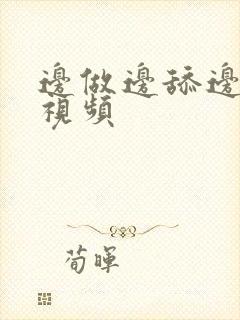 邊做邊舔邊
視頻
荀暉